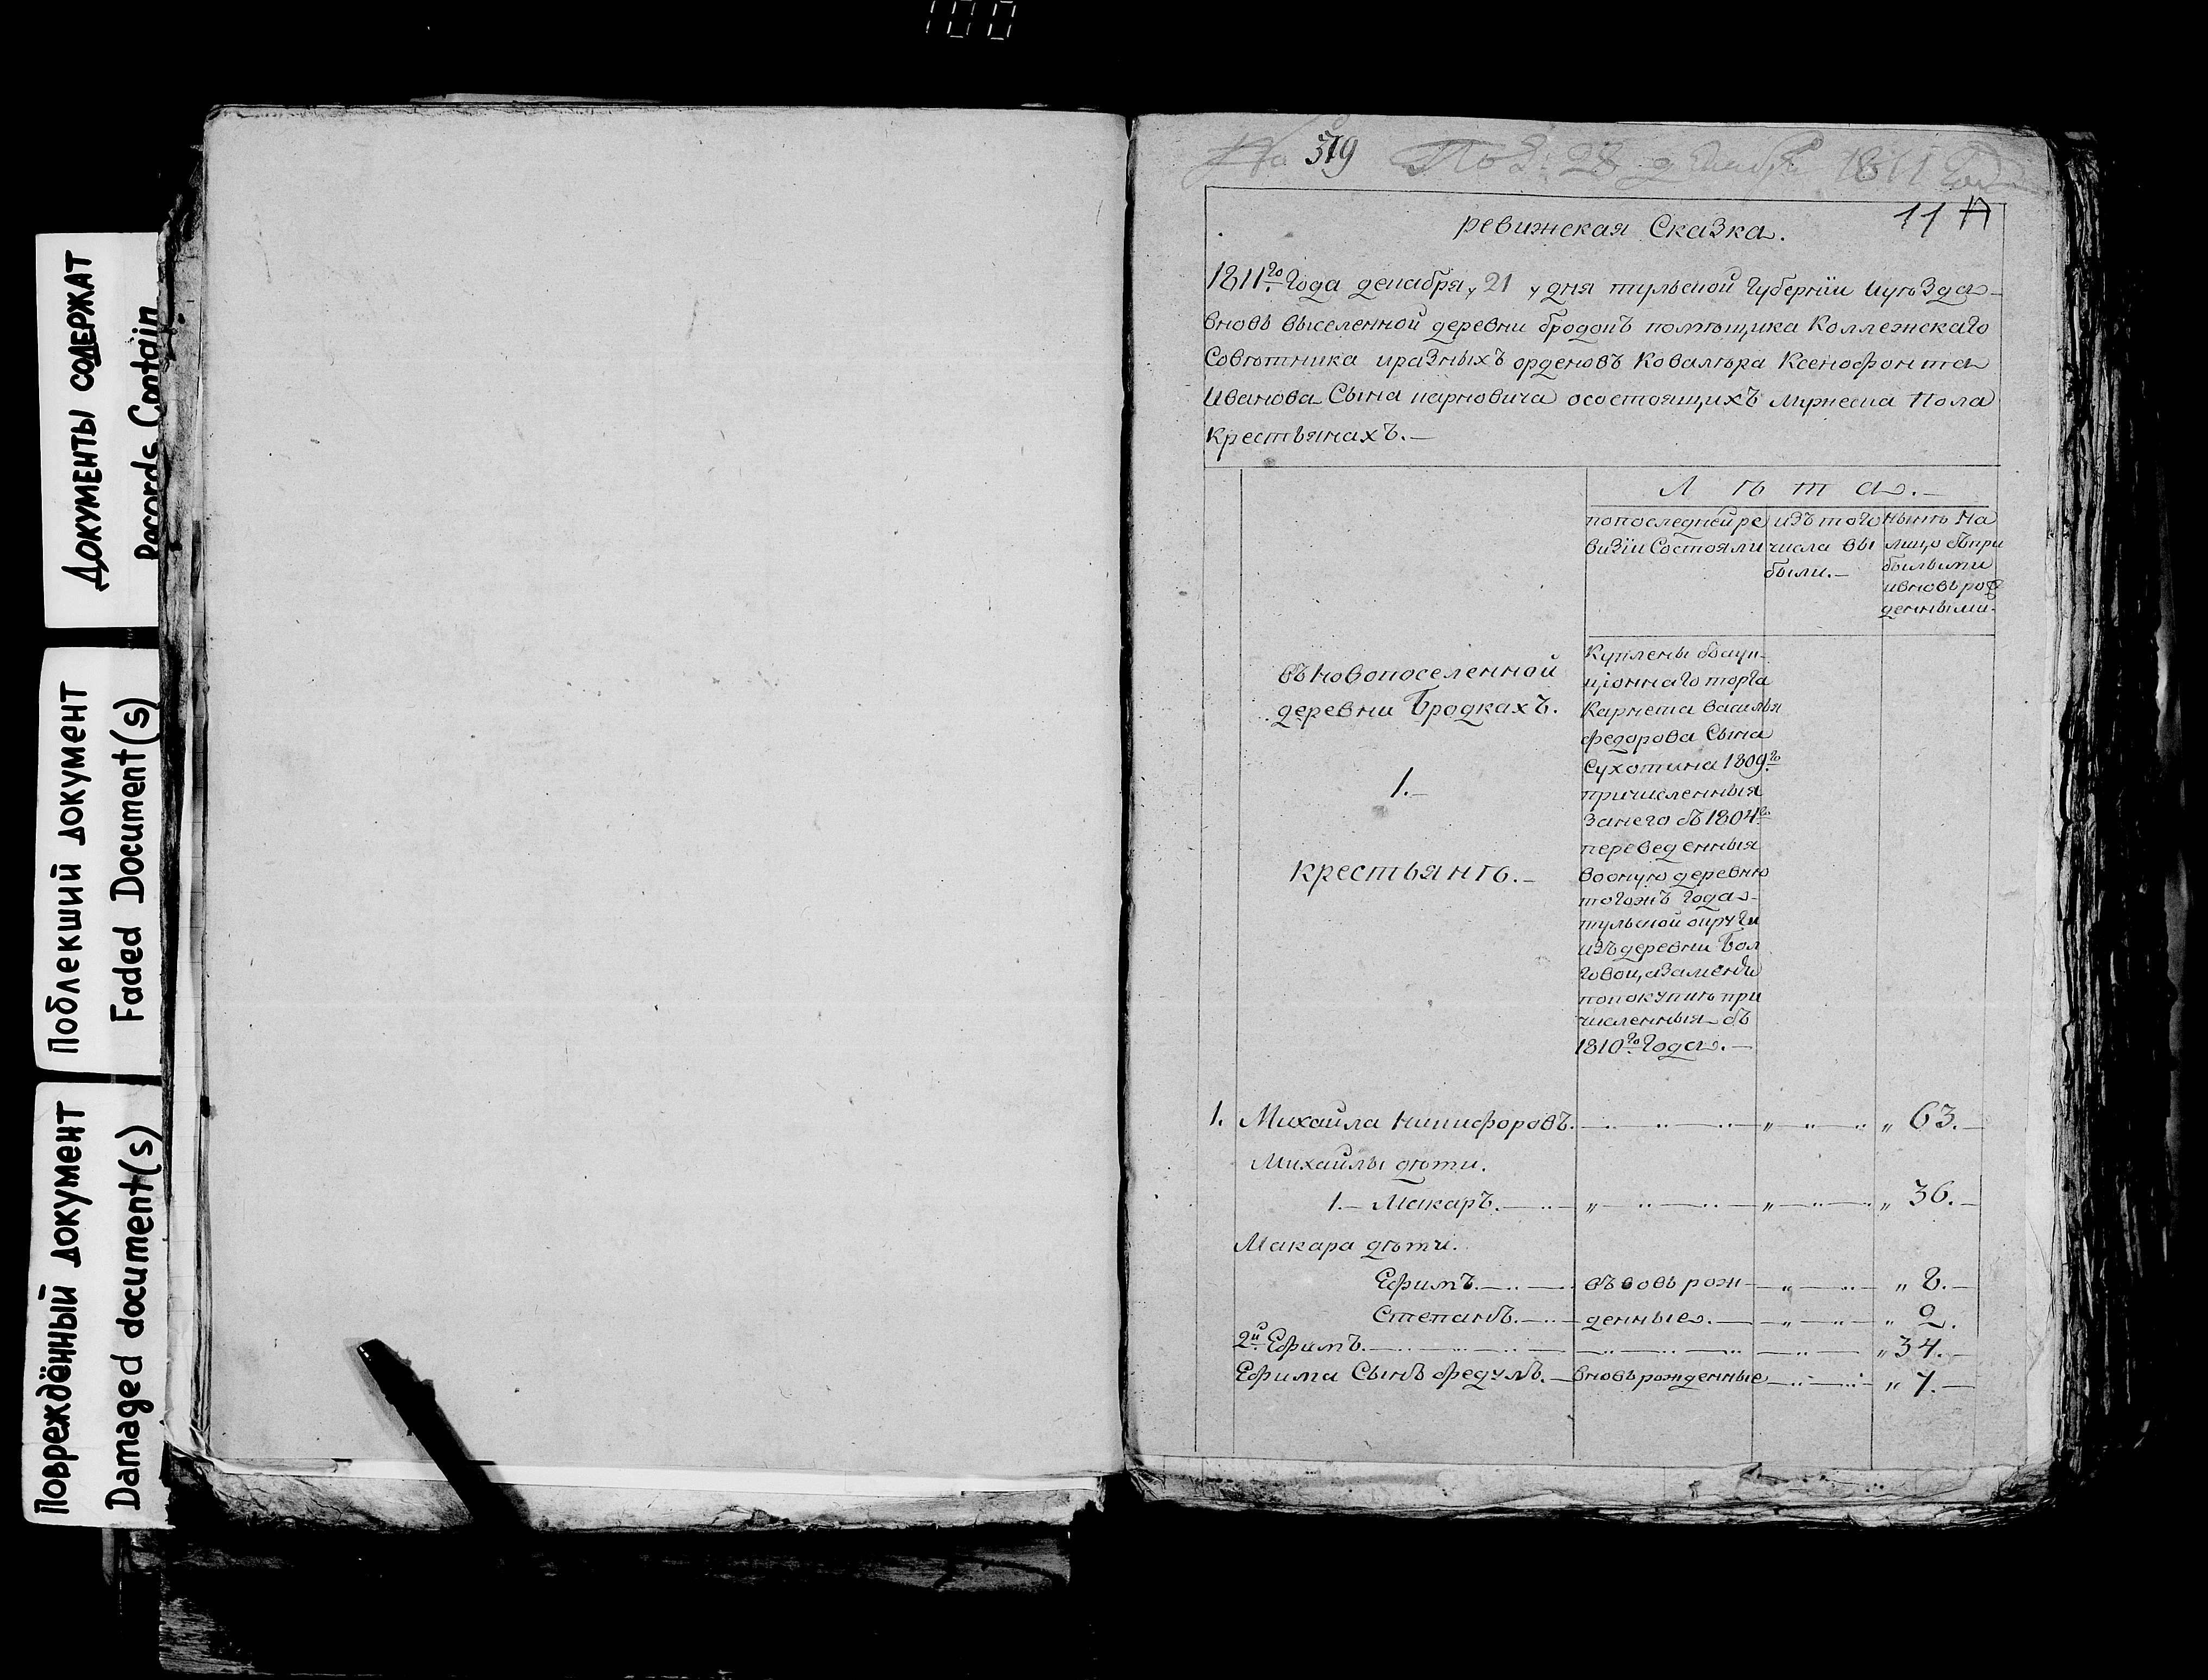 100
Документы содержат
Records Contain
Поблекший документ
Faded Document(s)
Повреждённый документ
Damaged document(s)
No 319 По 2: 23 декабря 1811 года
11
ревижская Сказка.
1811го года декабря 21 дня тульской губернии иуѣзда
вновь выселенной деревни бродокъ помѣщика Коллежскаго
Совѣтника иразныхъ орденовъ Ковалѣра Ксенофонта
Иванова Сына карновича осостоящихъ мужеска Пола
крестьянахъ.—
Л ѣ т а.—
попоследней ре изъ того нынѣ на
визіи Состояли числа вы лицо съ при
были.— былыми
ивновь рож
денными.
въ новопоселенной
деревни Бродкахъ.
1.—
крестьянѣ.—
Куплены саук
ціоннаго торга
Карнета василья
федорова Сына
Сухотина 1809го
причисленныя
Занего съ 1804го
переведенныя
вооную деревню
тогожъ года
тульской округи
изъ деревни Бол
говой, азаменя
попокупкѣ при
численныя съ
1810го Года.—
1. Михайла никифоровъ. „ 63.—
Михайлы дѣти.
1.— Макаръ. „ „ „ 36.—
Макара дѣти.
Ефимъ. въ вовь рож „ „ 8.—
Степанъ. денные. „ „ 2.
2й Ефимъ. „ 34.—
Ефима Сынъ федулъ. вновь рожденные „ 7.—